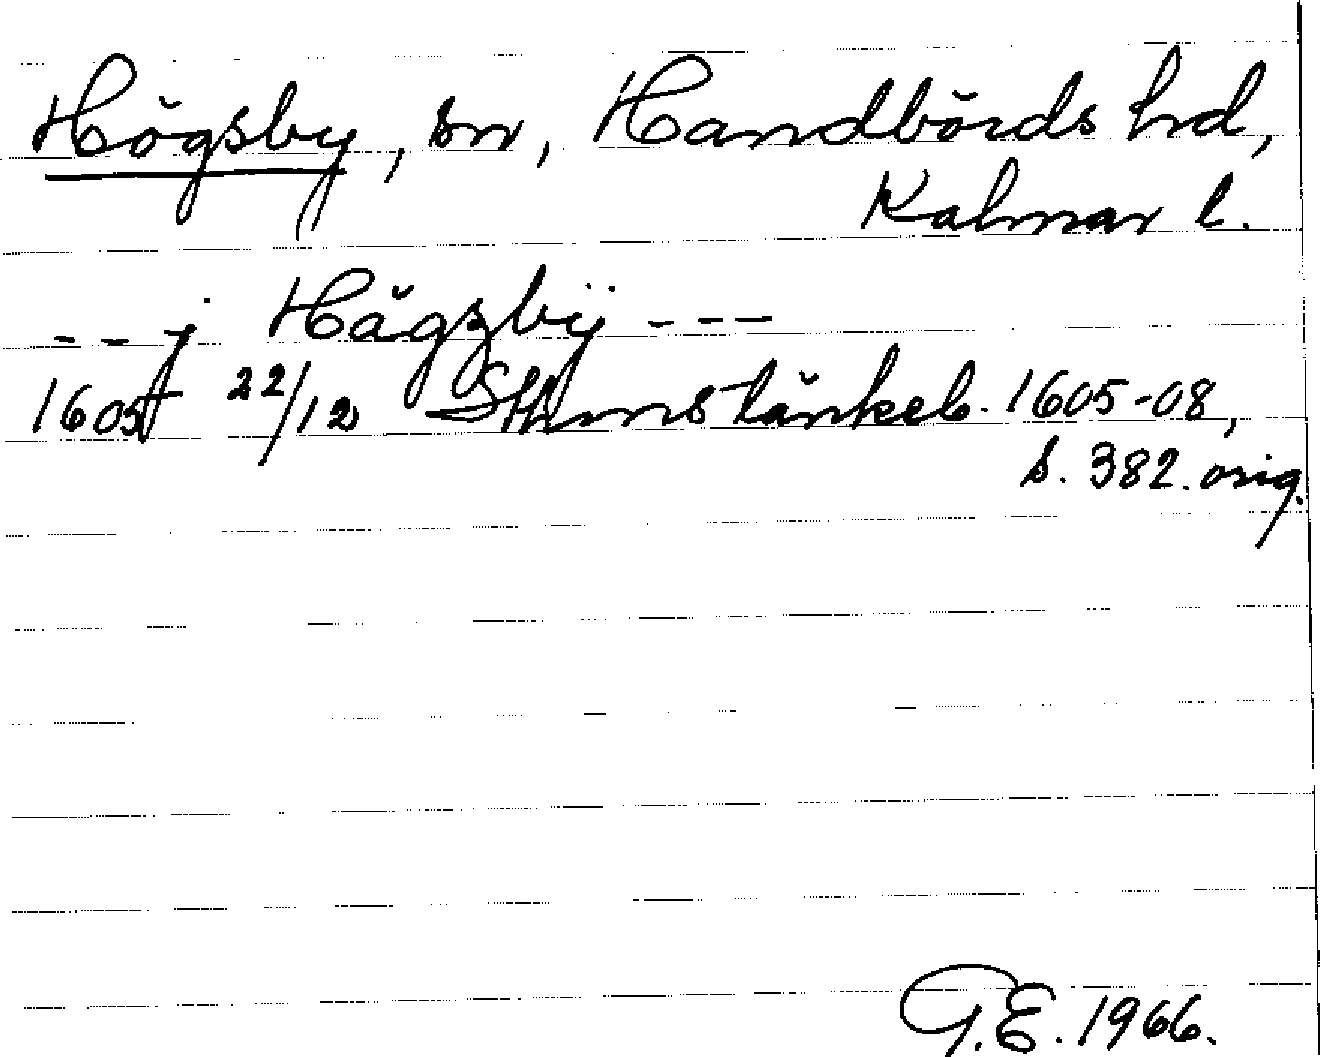 Högsby, sn, Handbörds hd,
Kalmar l.
- - j Hägzbÿ - - -
1605 22/12 Sthms tänkeb. 1605-08,
s. 382. orig.
G.E. 1966.